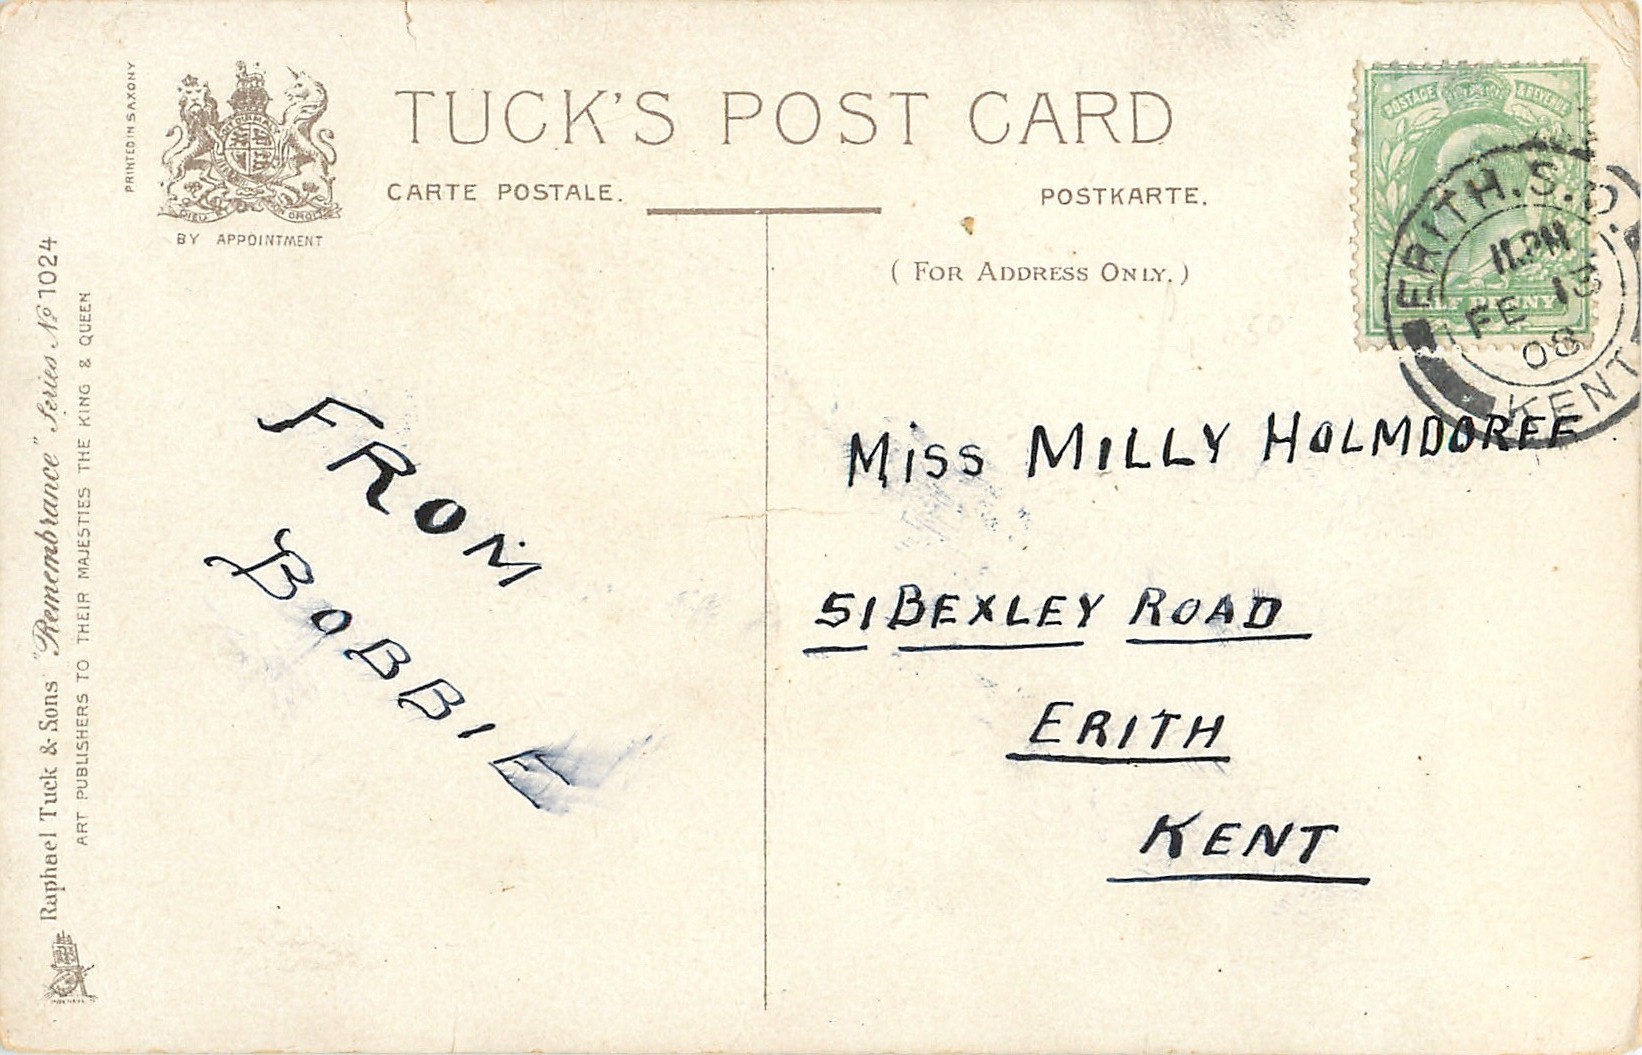 PRINTED IN SAXONY
DIEU ET MON DROIT
BY APPOINTMENT
TUCK'S POST CARD
CARTE POSTALE.
POSTKARTE.
( FOR ADDRESS ONLY. )
POSTAGE & REVENUE
HALF PENNY
ERITH. S.O.
11.PM
FE 13
08
KENT
Raphael Tuck & Sons "Remembrance" Series No 1024
ART PUBLISHERS TO THEIR MAJESTIES THE KING & QUEEN
FROM
BOBBIE
MISS MILLY HOLMDOREE
51 BEXLEY ROAD
ERITH
KENT